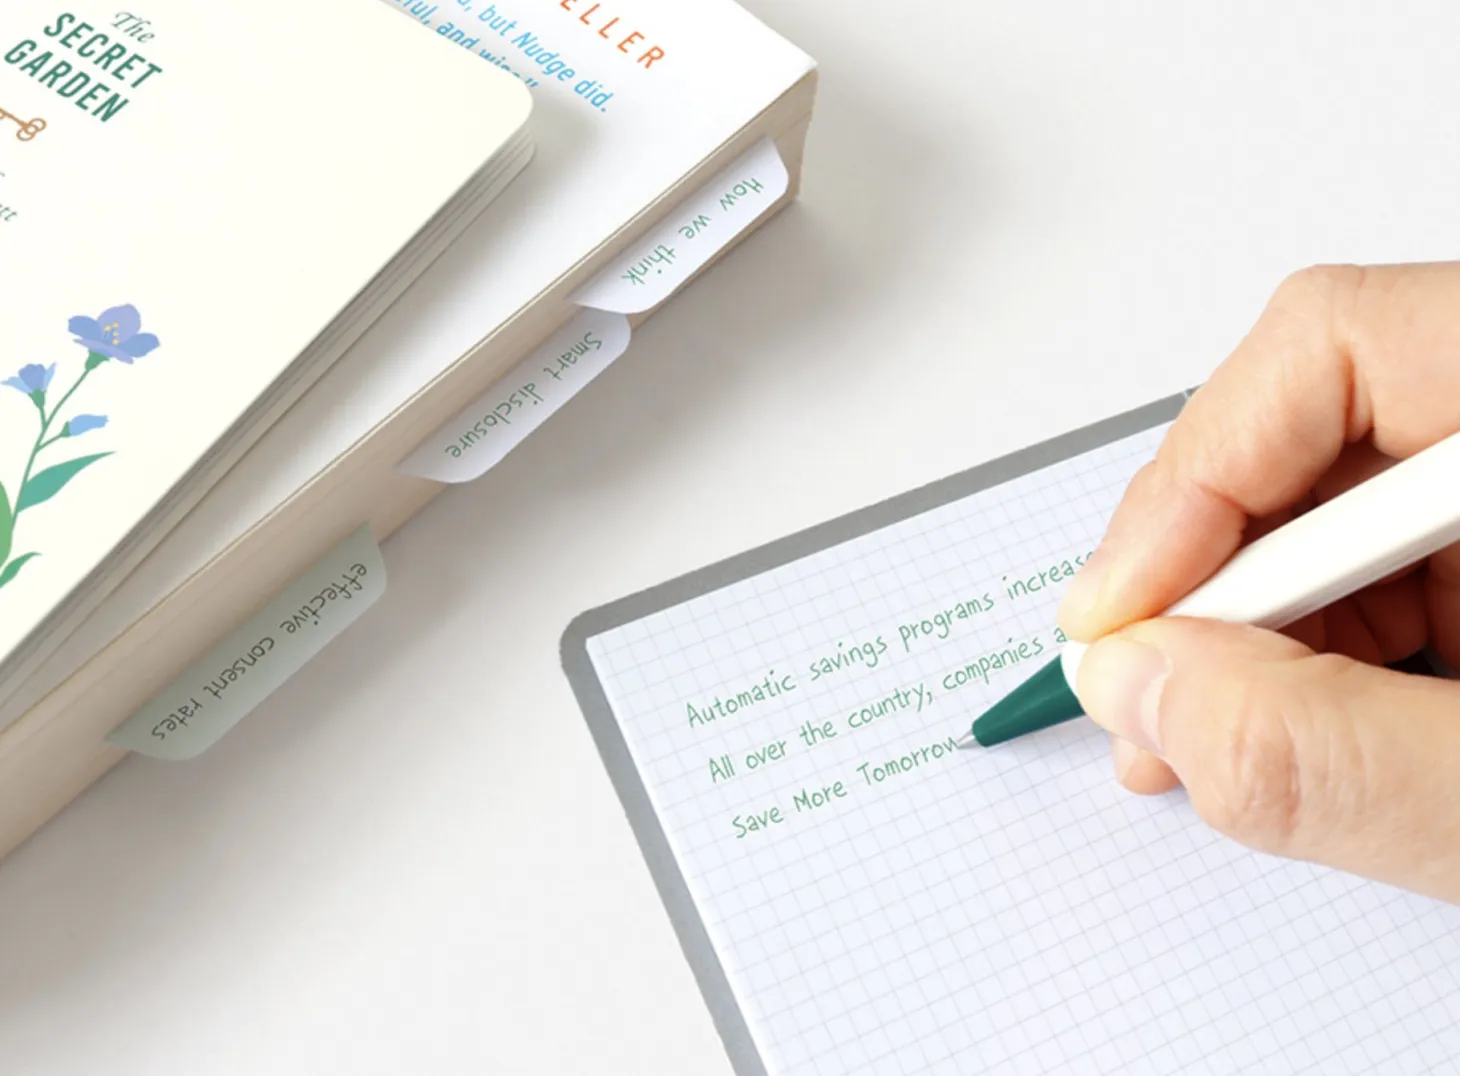 The
SECRET
GARDEN
ELLER
but Nudge did.
and
How we think
Smart disclosure
effective consent rates
Automatic savings programs increase
All over the country, companies a
Save More Tomorrow